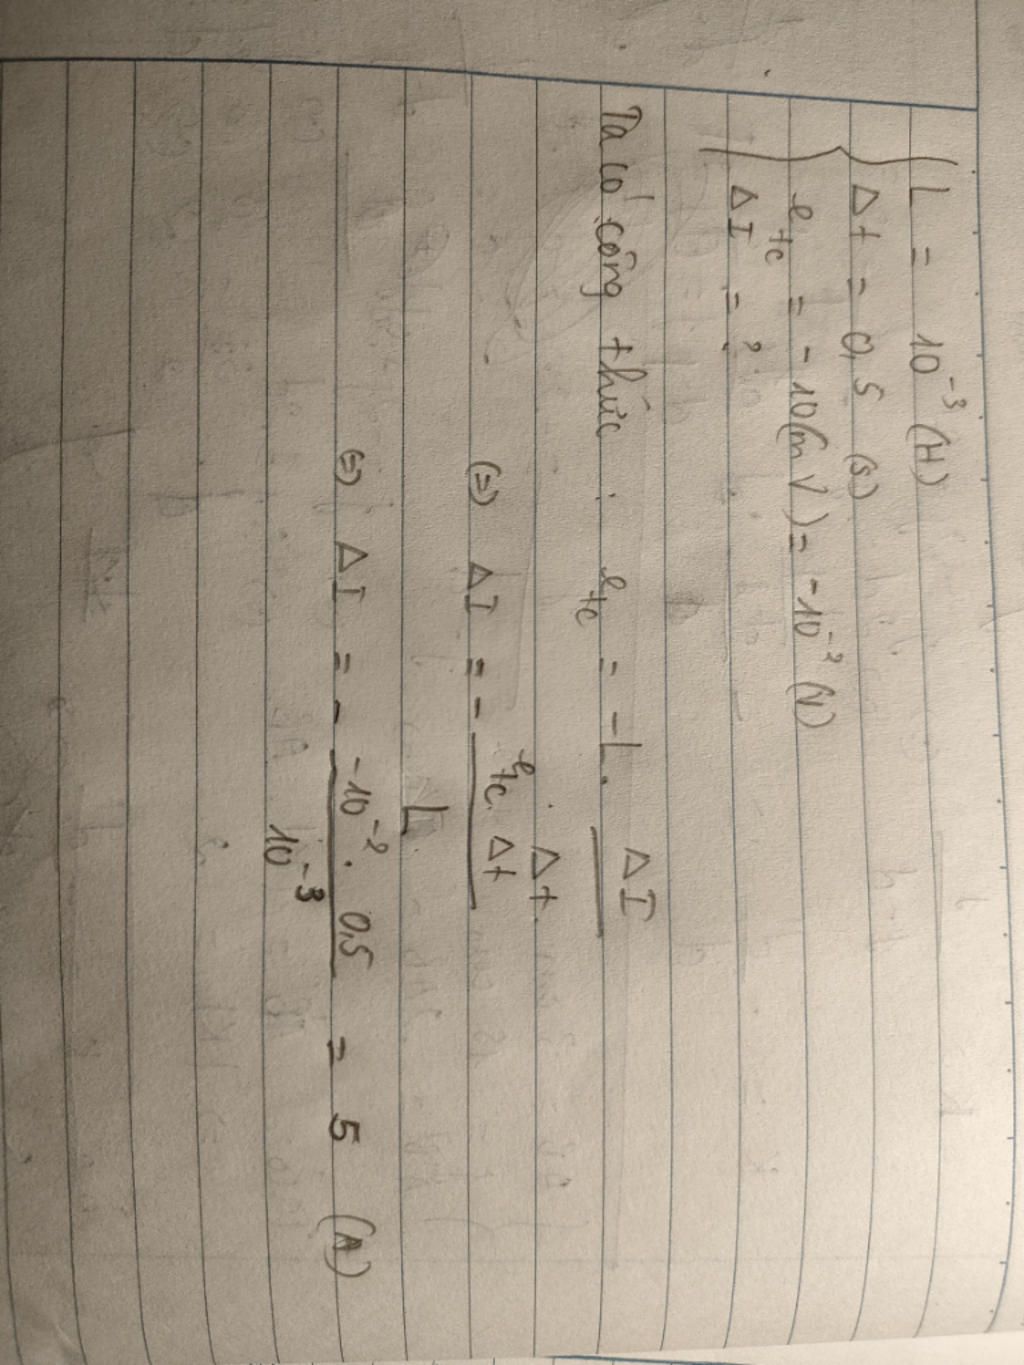 L = 10⁻³ (H)
Δt = 0,5 (s)
etc = - 10(mV) = -10⁻² (V)
ΔI = ?
Ta có công thức : etc = -L. ΔI / Δt
(=) ΔI = - etc. Δt / L
(=) ΔI = - -10⁻² . 0,5 / 10⁻³ = 5 (A)